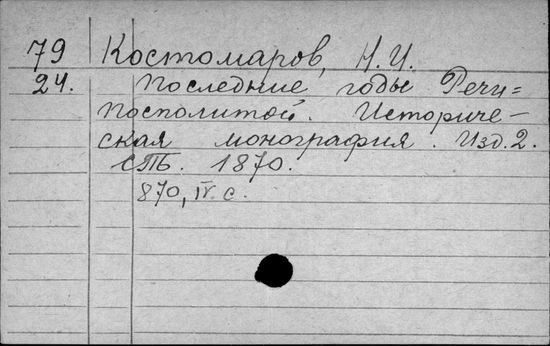 79 Костомаров, Н.И.
24. Последние годы Речи=
посполитой. Историче-
ская монография. Изд. 2.
СПб. 1870.
870, IV с.